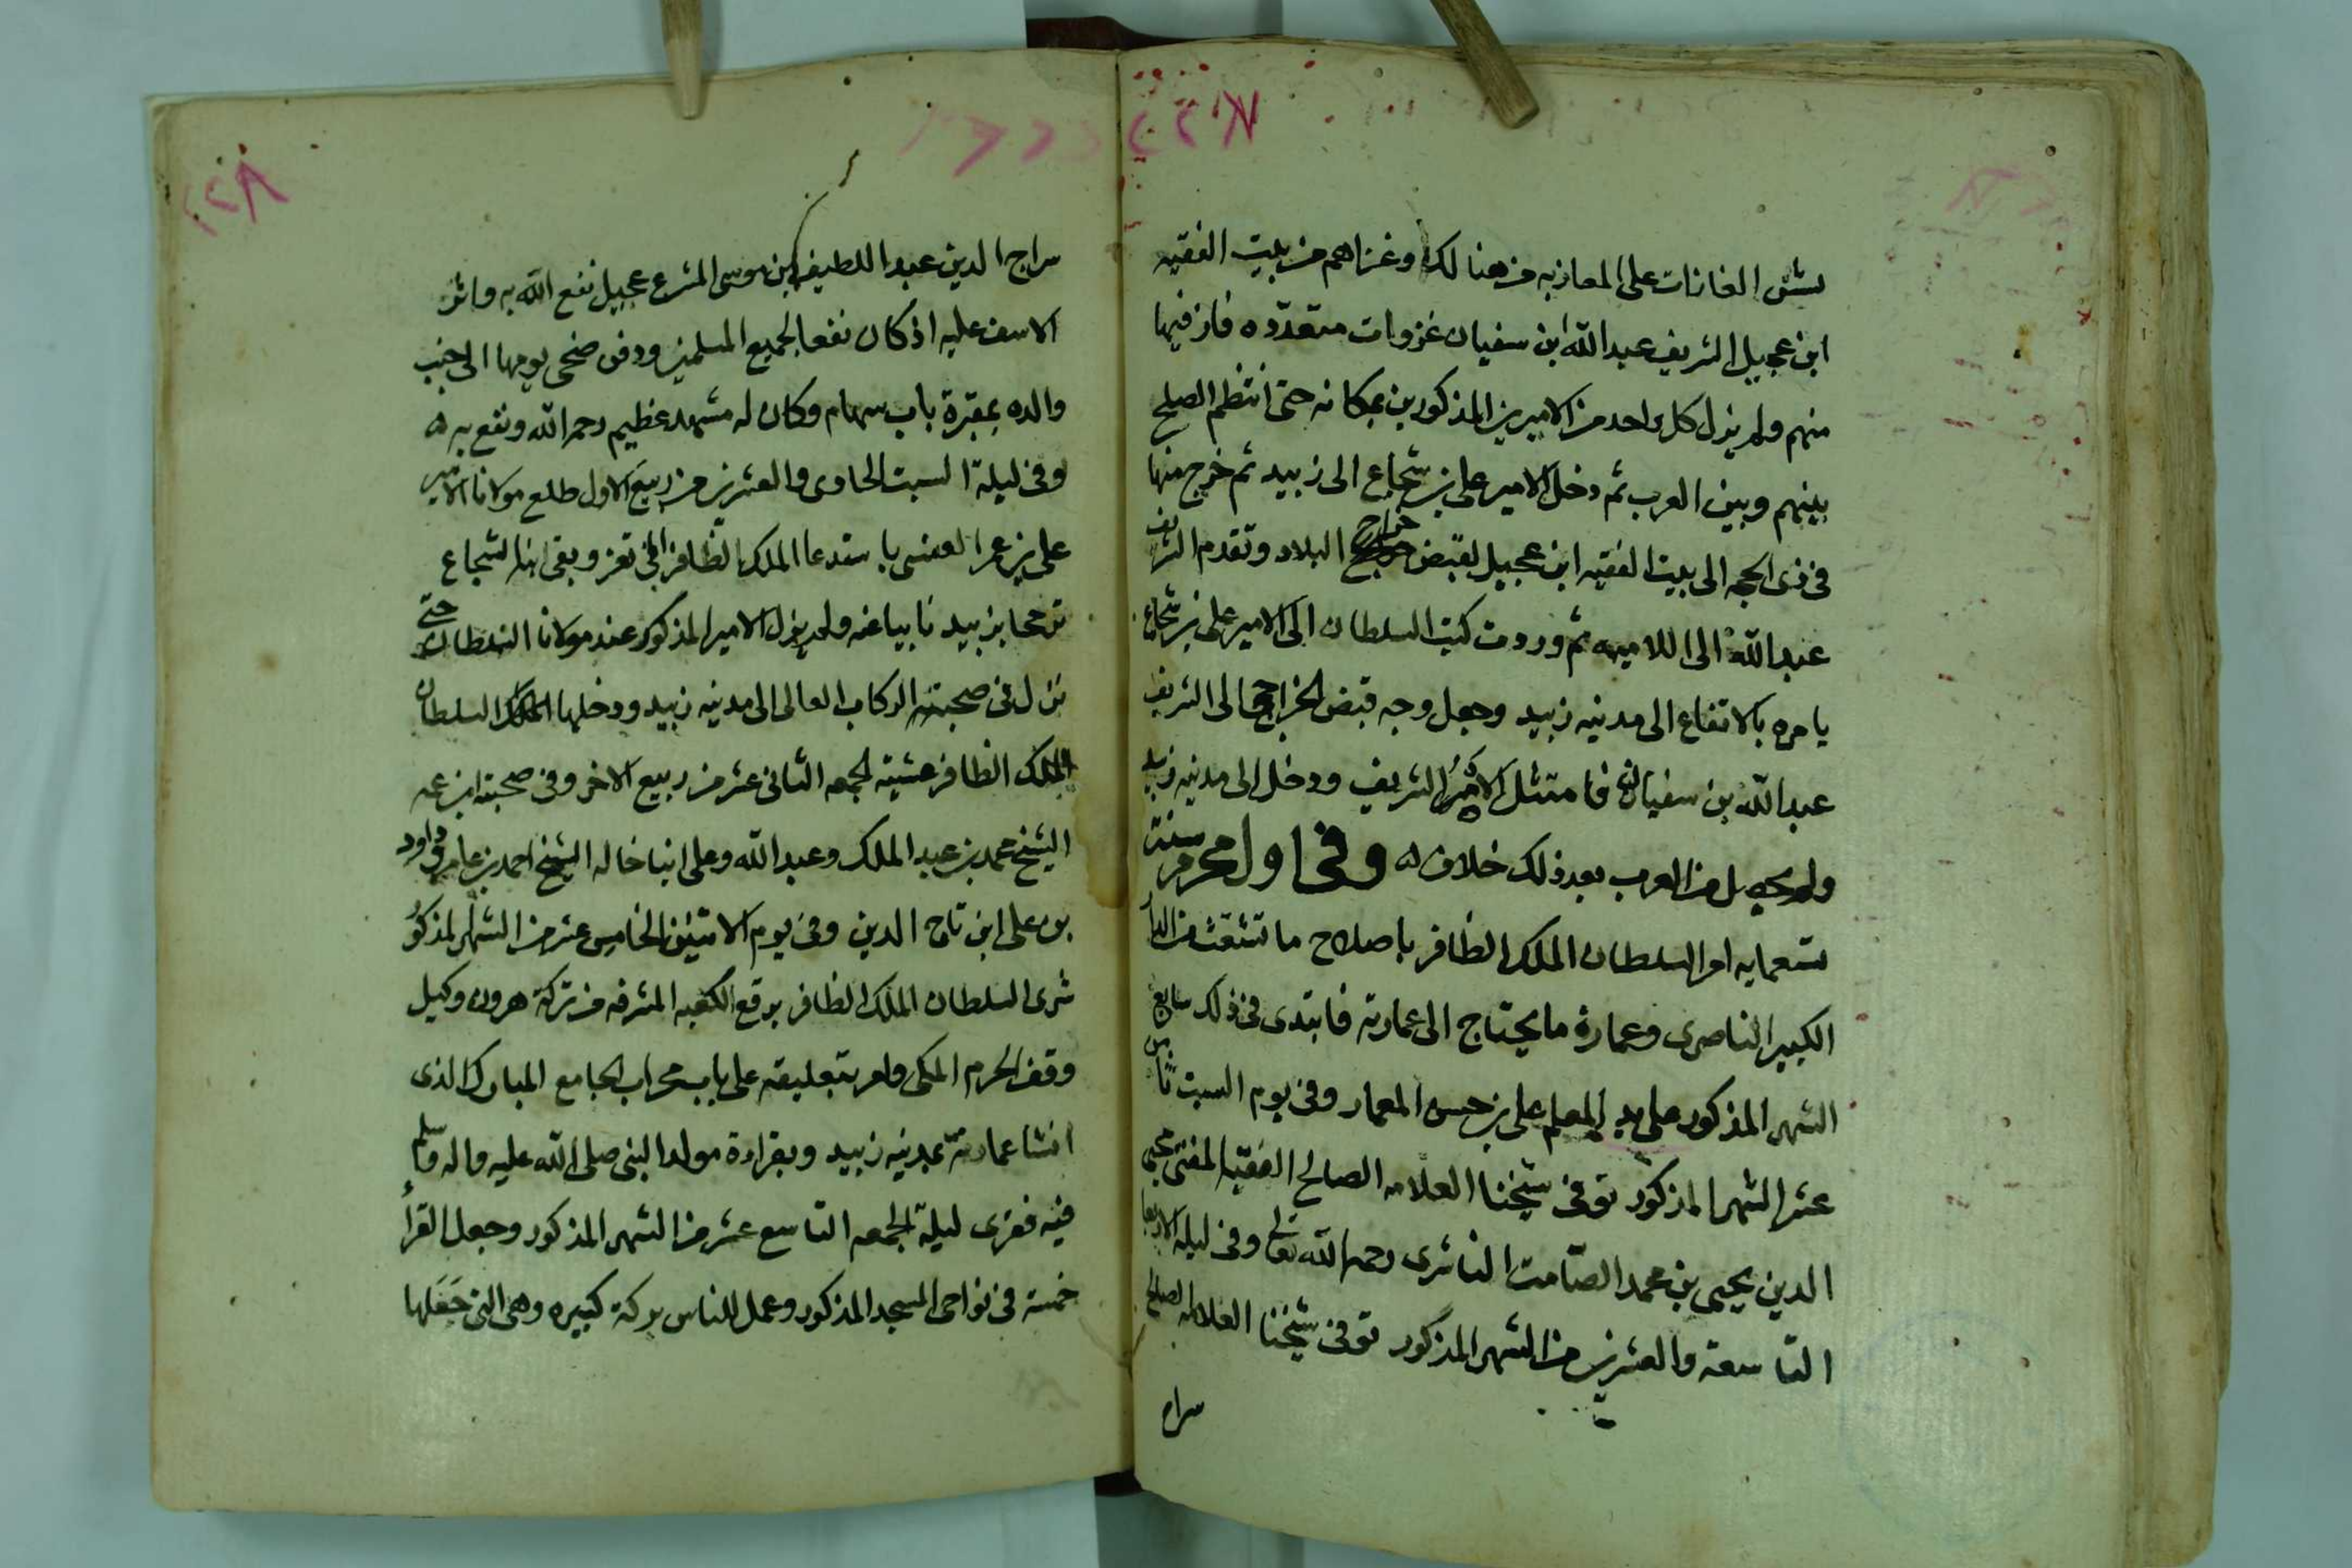 بشن الغارات على المعازبه من هنالك وغزاهم من بيت الفقيه
ابن عجيل الشريف عبد الله ابن سفيان غزوات متعدده فاز فيها
منهم ولم يزل كل واحد من الاميرين المذكورين بمكانه حتى انتظم الصلح
بينهم وبين العرب ثم دخل الامير على بن شجاع الى زبيد ثم خرج منها
فى ذى الحجه الى بيت الفقيه ابن عجيل لقبض خراج البلاد وتقدم الشريف
عبد الله الى اللاميه ثم وردت كتب السلطان الى الامير على بن شجاع
يامره بالارتفاع الى مدينه زبيد وجعل وجه قبض الخراج الى الشريف
عبد الله بن سفيان فامتثل الامر الشريف ودخل الى مدينه زبيد
ولم يحصل من العرب بعد ذلك خلاف ه وفى اول محرم سنة
تسعمايه امر السلطان الملك الظافر باصلاح ما تشعث من الدار
الكبير الناصرى وعمارة ما يحتاج الى عمارته فابتدى فى ذلك سابع
الشهر المذكور على يد المعلم على بن حسن المعمار وفى يوم السبت ثامن
عشر الشهر المذكور توفى شيخنا العلامه الصالح الفقيه المفتى محيى
الدين يحيى بن محمد الصامت الناشرى رحمه الله تعالى وفى ليلة الاربعا
التاسعة والعشرين من الشهر المذكور توفى شيخنا العلامه الصالح
سراج
٢٢٨
سراج الدين عبد اللطيف ابن موسى المشرع عجيل نفع الله به واثر
الاسف عليه اذ كان نفعا لجميع المسلمين ودفن ضحى يومها الى جنب
والده بمقبرة باب سهام وكان له مشهد عظيم رحمه الله ونفع به ه
وفى ليلة السبت الحادى والعشرين من ربيع الاول طلع مولانا الامير
على بن عمر العنسى باستدعا الملك الظافر الى تعز وبقى ابنه شجاع
بزبيد نايبا عنه ولم يزل الامير المذكور عند مولانا السلطان حتى
نزل فى صحبته الركاب العالى الى مدينه زبيد ودخلها السلطان
الملك الظافر عشية الجمعه الثانى عشر من ربيع الاخر وفى صحبته ابن عمه
الشيخ محمد بن عبد الملك وعبد الله وعلى ابنا خاله الشيخ احمد بن عامر وداود
بن على ابن تاج الدين وفى يوم الاثنين الخامس عشر من الشهر المذكور
شرى السلطان الملك الظافر برقع الكعبه المشرفه من تركة هرون وكيل
وقف الحرم المكى وامر بتعليقه على باب محراب الجامع المبارك الذى
انشا عمارته بمدينه زبيد وبقراءة مولد النبى صلى الله عليه واله وسلم
فيه فقرى ليلة الجمعه التاسع عشر من الشهر المذكور وجعل القرا
خمسة فى نواحى المسجد المذكور وعمل للناس بركة كبيره وهى التى جعلها